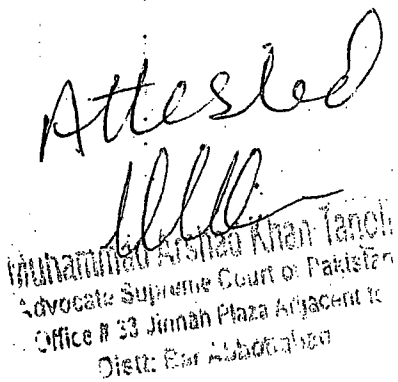 Attested
Muhammad Arshad Khan Tanoli
Advocate Supreme Court of Pakistan
Office # 33 Jinnah Plaza Adjacent to
Distt: Bar Abbottabad